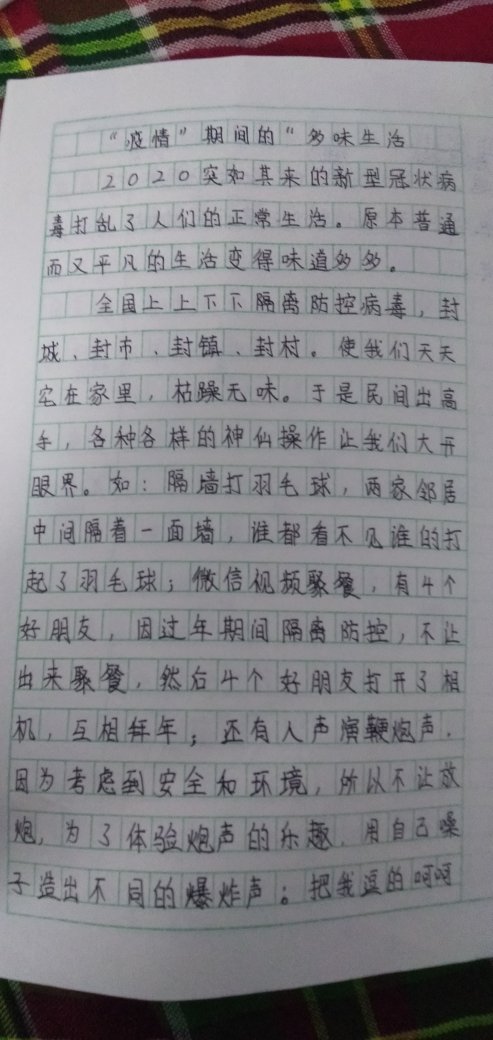 “疫情”期间的“多味生活
2020突如其来的新型冠状病
毒打乱了人们的正常生活。原本普通
而又平凡的生活变得味道多多。
全国上上下下隔离防控病毒，封
城、封市、封镇、封村。使我们天天
宅在家里，枯躁无味。于是民间出高
手，各种各样的神仙操作让我们大开
眼界。如：隔墙打羽毛球，两家邻居
中间隔着一面墙，谁都看不见谁的打
起了羽毛球；微信视频聚餐，有4个
好朋友，因过年期间隔离防控，不让
出来聚餐，然后4个好朋友打开了相
机，互相拜年；还有人声演鞭炮声，
因为考虑到安全和环境，所以不让放
炮，为了体验炮声的乐趣，用自己嗓
子造出不同的爆炸声。把我逗的呵呵